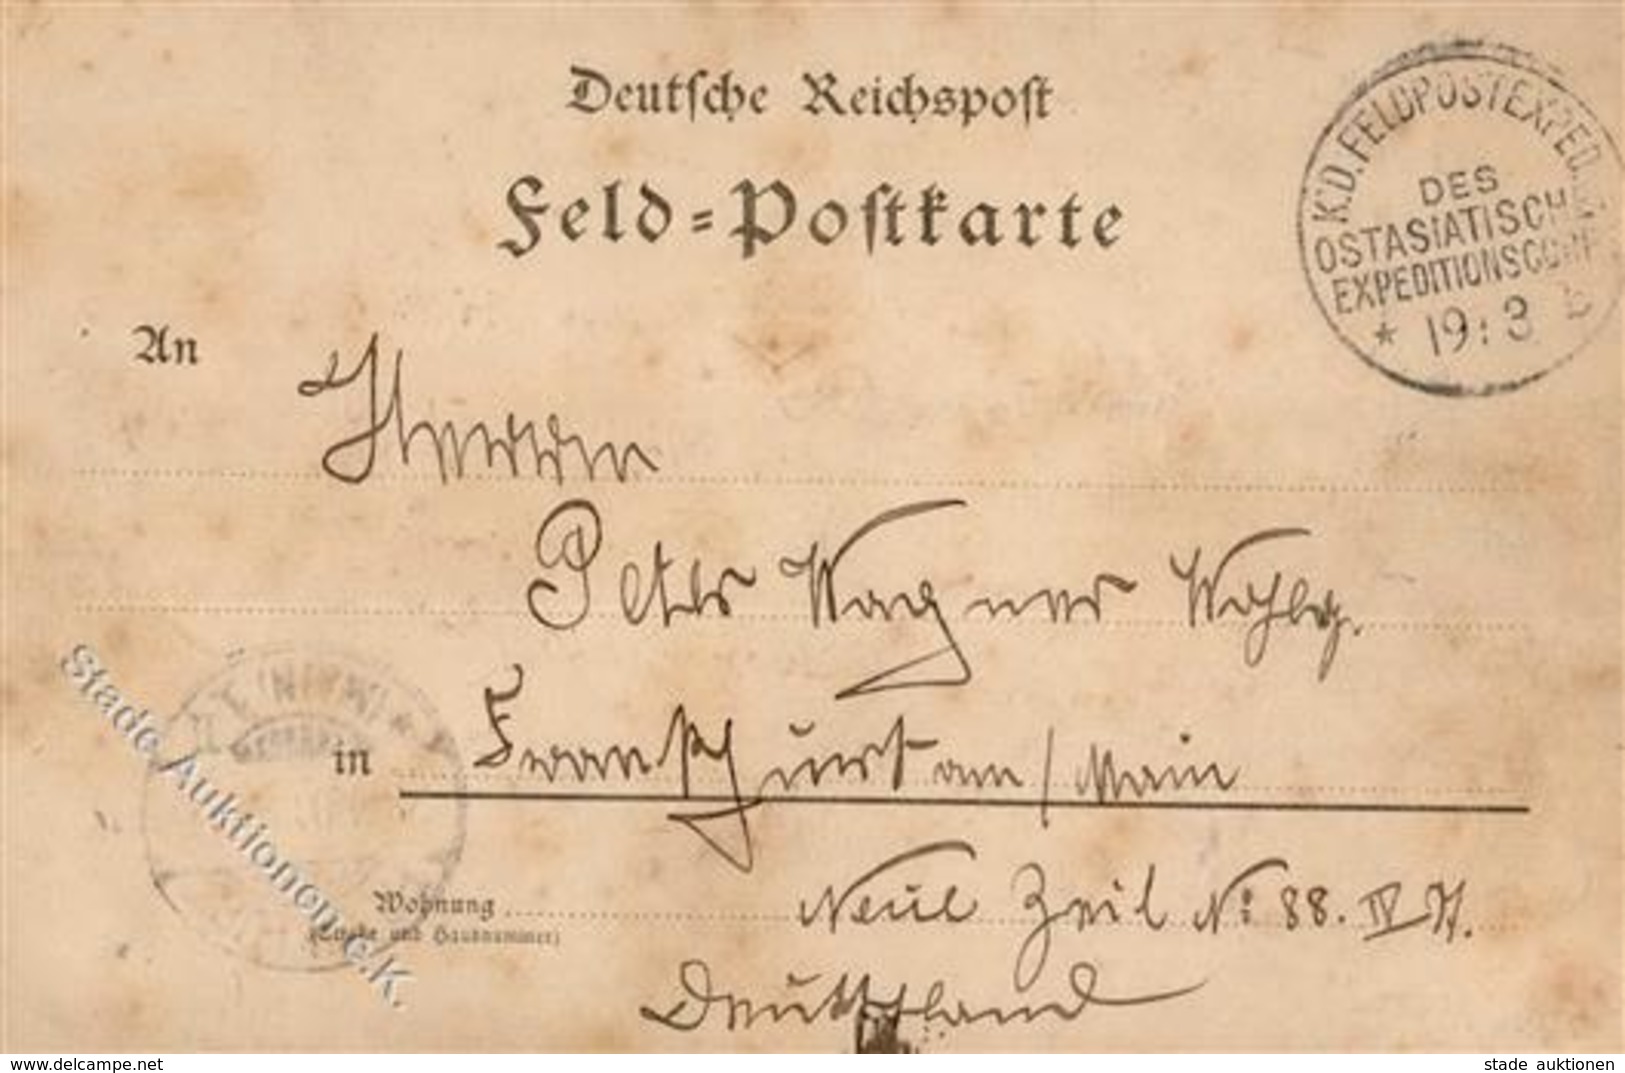 Deutsche Reichspost
Feld=Postkarte
K.D. FELDPOSTEXPED.
DES
OSTASIATISCH
EXPEDITIONSCORP
* 19: 3 b
An
Herrn
Peter Wagner Wohlg.
in Frankfurt am / Main
Wohnung Neue Zeil No: 88. IV H.
(Straße und Hausnummer)
Deutschland
(MAIN) 1.
stade Auktionen e.K.
www.delcampe.net
stade auktionen